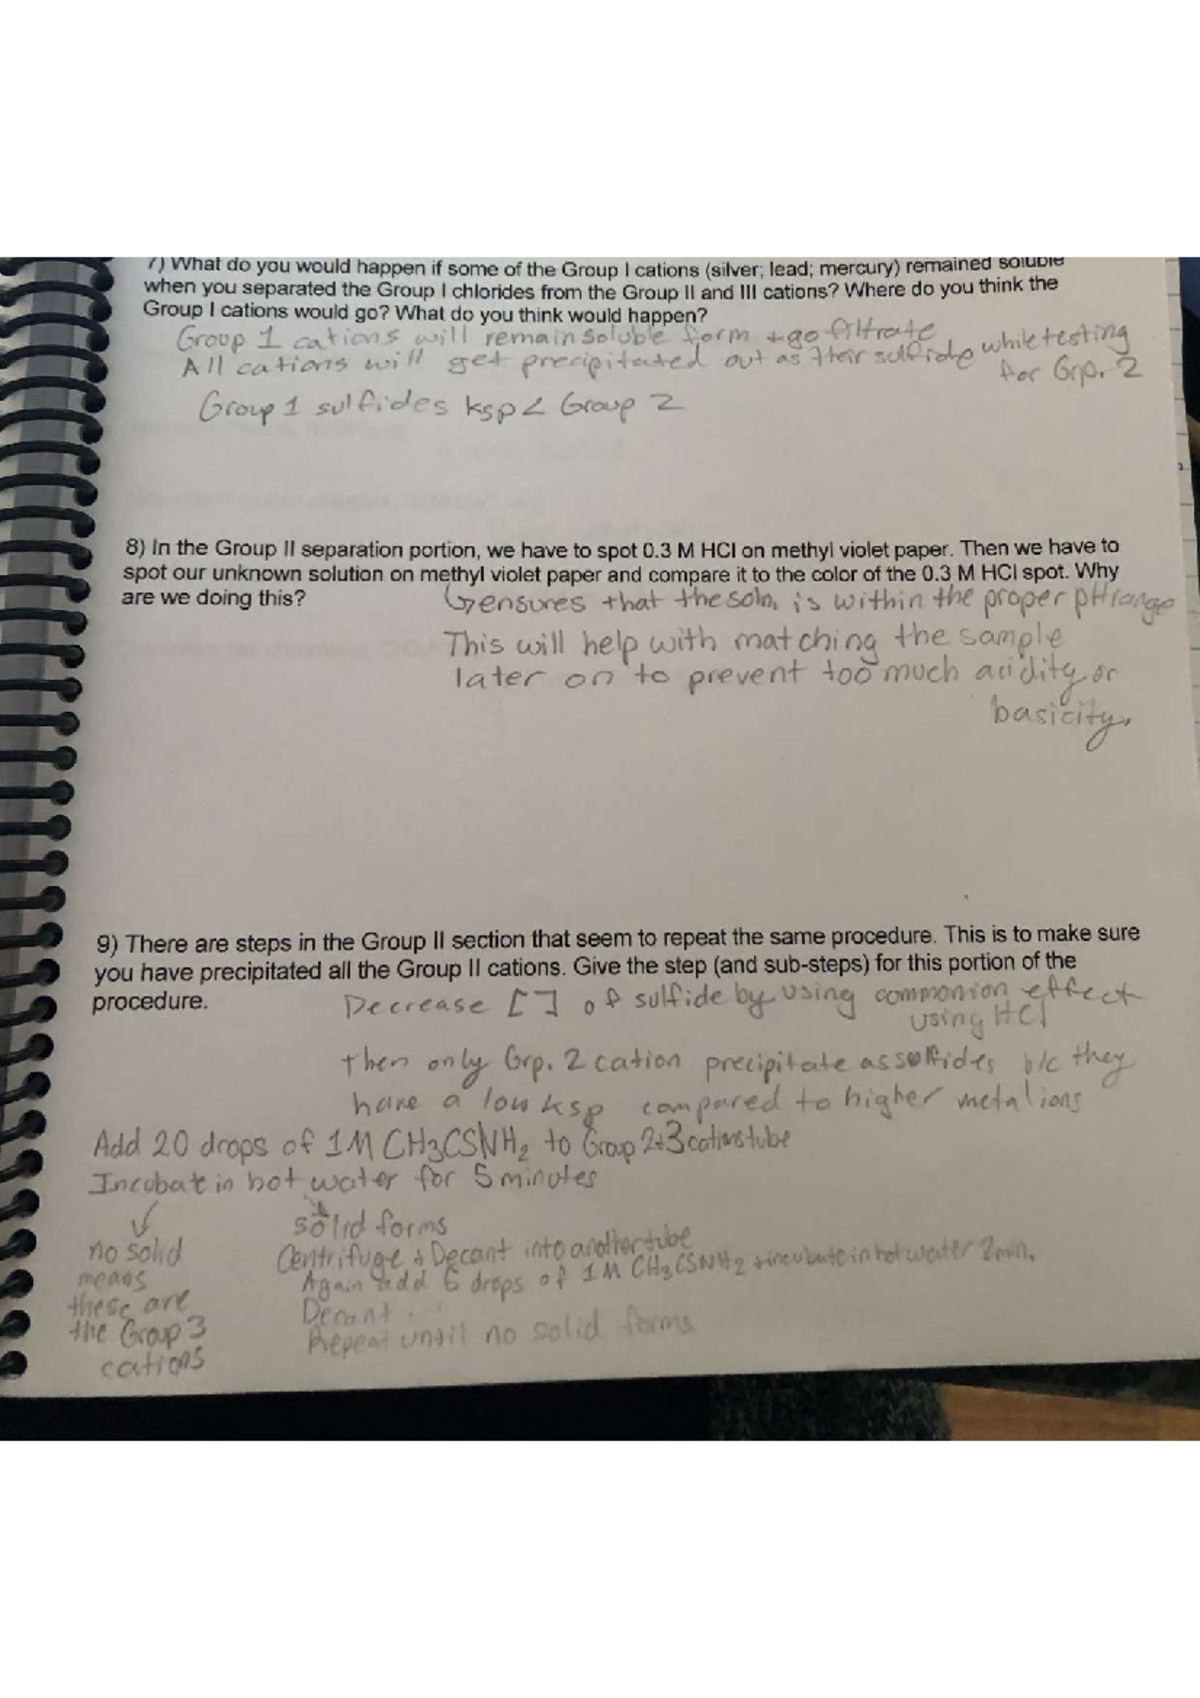 7) What do you would happen if some of the Group I cations (silver; lead; mercury) remained soluble
when you separated the Group I chlorides from the Group II and III cations? Where do you think the
Group I cations would go? What do you think would happen?
Group 1 cations will remain soluble form + go filtrate
All cations will get precipitated out as their sulfide while testing
for Grp. 2
Group 1 sulfides ksp < Group 2
8) In the Group II separation portion, we have to spot 0.3 M HCl on methyl violet paper. Then we have to
spot our unknown solution on methyl violet paper and compare it to the color of the 0.3 M HCl spot. Why
are we doing this?
ensures that the soln. is within the proper pH range
This will help with matching the sample
later on to prevent too much acidity or
basicity.
9) There are steps in the Group II section that seem to repeat the same procedure. This is to make sure
you have precipitated all the Group II cations. Give the step (and sub-steps) for this portion of the
procedure.
Decrease [ ] of sulfide by using common ion effect
using HCl
then only Grp. 2 cation precipitate as sulfides b/c they
have a low ksp compared to higher metal ions
Add 20 drops of 1M CH3CSNH2 to Group 2+3 cations tube
Incubate in hot water for 5 minutes
no solid
means
these are
the Group 3
cations
solid forms
Centrifuge + Decant into another tube
Again add 6 drops of 1M CH3CSNH2 + incubate in hot water 2 min.
Decant.
Repeat until no solid forms